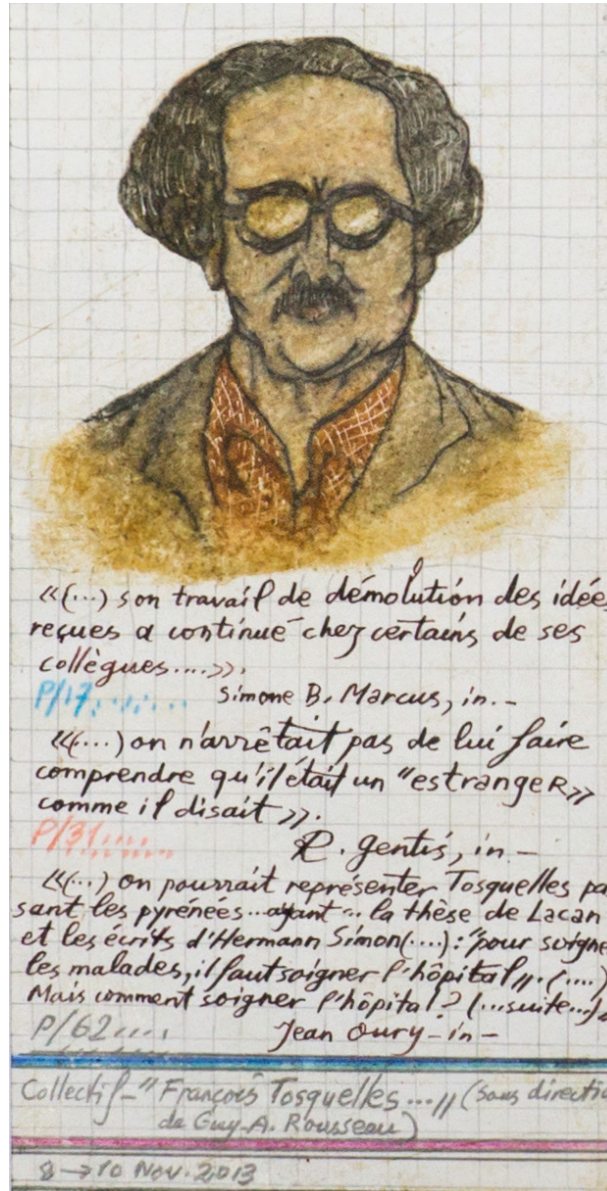 «(...) son travail de démolution des idée
reçues a continué chez certains de ses
collègues....».
P/17.......
Simone B. Marcus, in.-
«(...) on n'arrêtait pas de lui faire
comprendre qu'il était un "estrangeR»
comme il disait».
P/31....
R. gentis, in-
«(...) on pourrait représenter Tosquelles pa
sant les pyrénées...ayant... la thèse de Lacan
et les écrits d'Hermann Simon(....): "pour soigne
les malades, il faut soigner l'hôpital". (....)
Mais comment soigner l'hôpital? (...suite...)
P/62....
Jean Oury-in-
Collectif-"François Tosquelles..." (sous directio
de Guy-A. Rousseau)
8→10 Nov. 2013